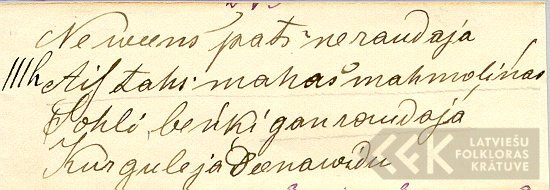 Neweens pats neraudaja
Aif tahs mahas mahmolinas
Sohli, benki gan raudaja
Kur guleja Deenawidu
LATVIEŠU
FOLKLORAS
KRĀTUVE